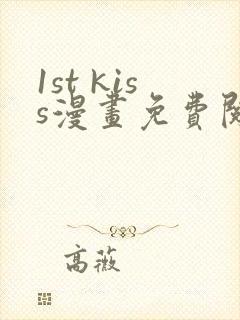 1st kis
s漫畫免費閱
高薇